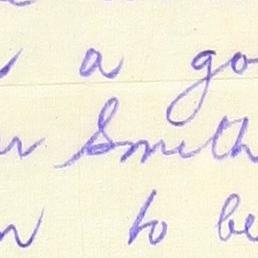 a go
Smith
to be